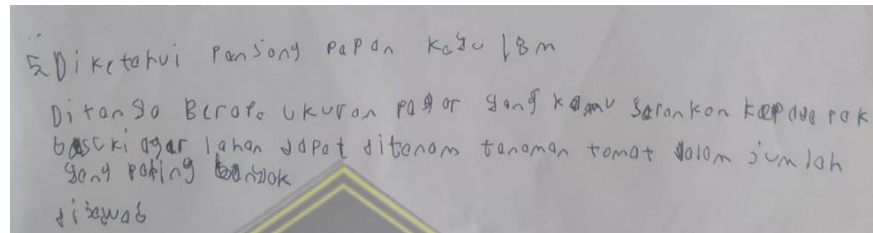 5. Diketahui Panjang Papan Kayu 18 m
Ditanya Berapa ukuran pagar yang kamu sarankan kepada pak
basuki agar lahan dapat ditanam tanaman tomat dalam jumlah
yang paling banyak
dijawab